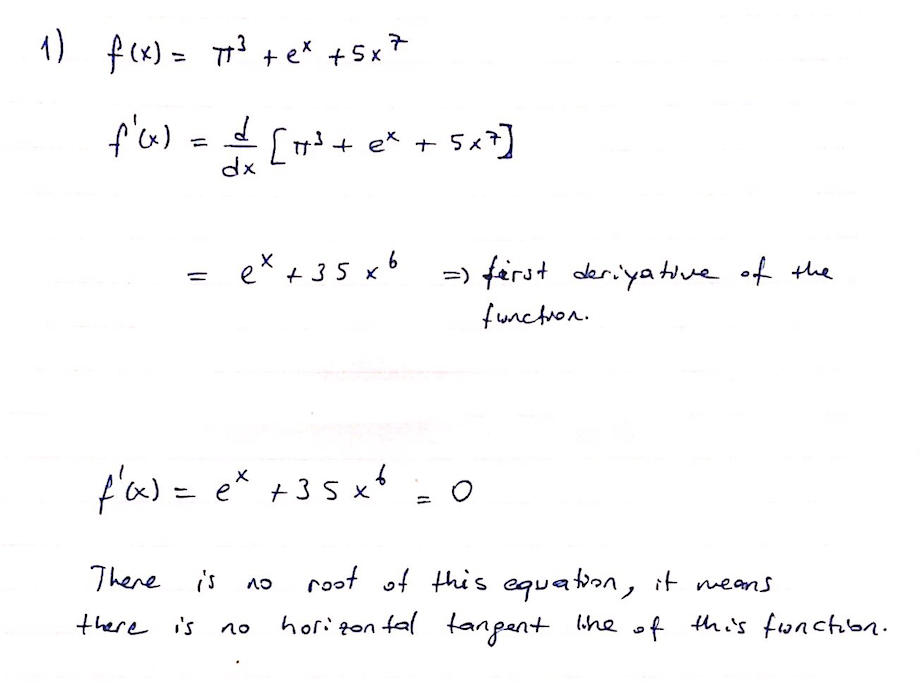 1) f(x) = π³ + eˣ + 5x⁷
f'(x) = d/dx [π³ + eˣ + 5x⁷]
= eˣ + 35x⁶ => first deriyative of the
function.
f'(x) = eˣ + 35x⁶ = 0
There is no root of this equation, it means
there is no horizontal tangent line of this function.